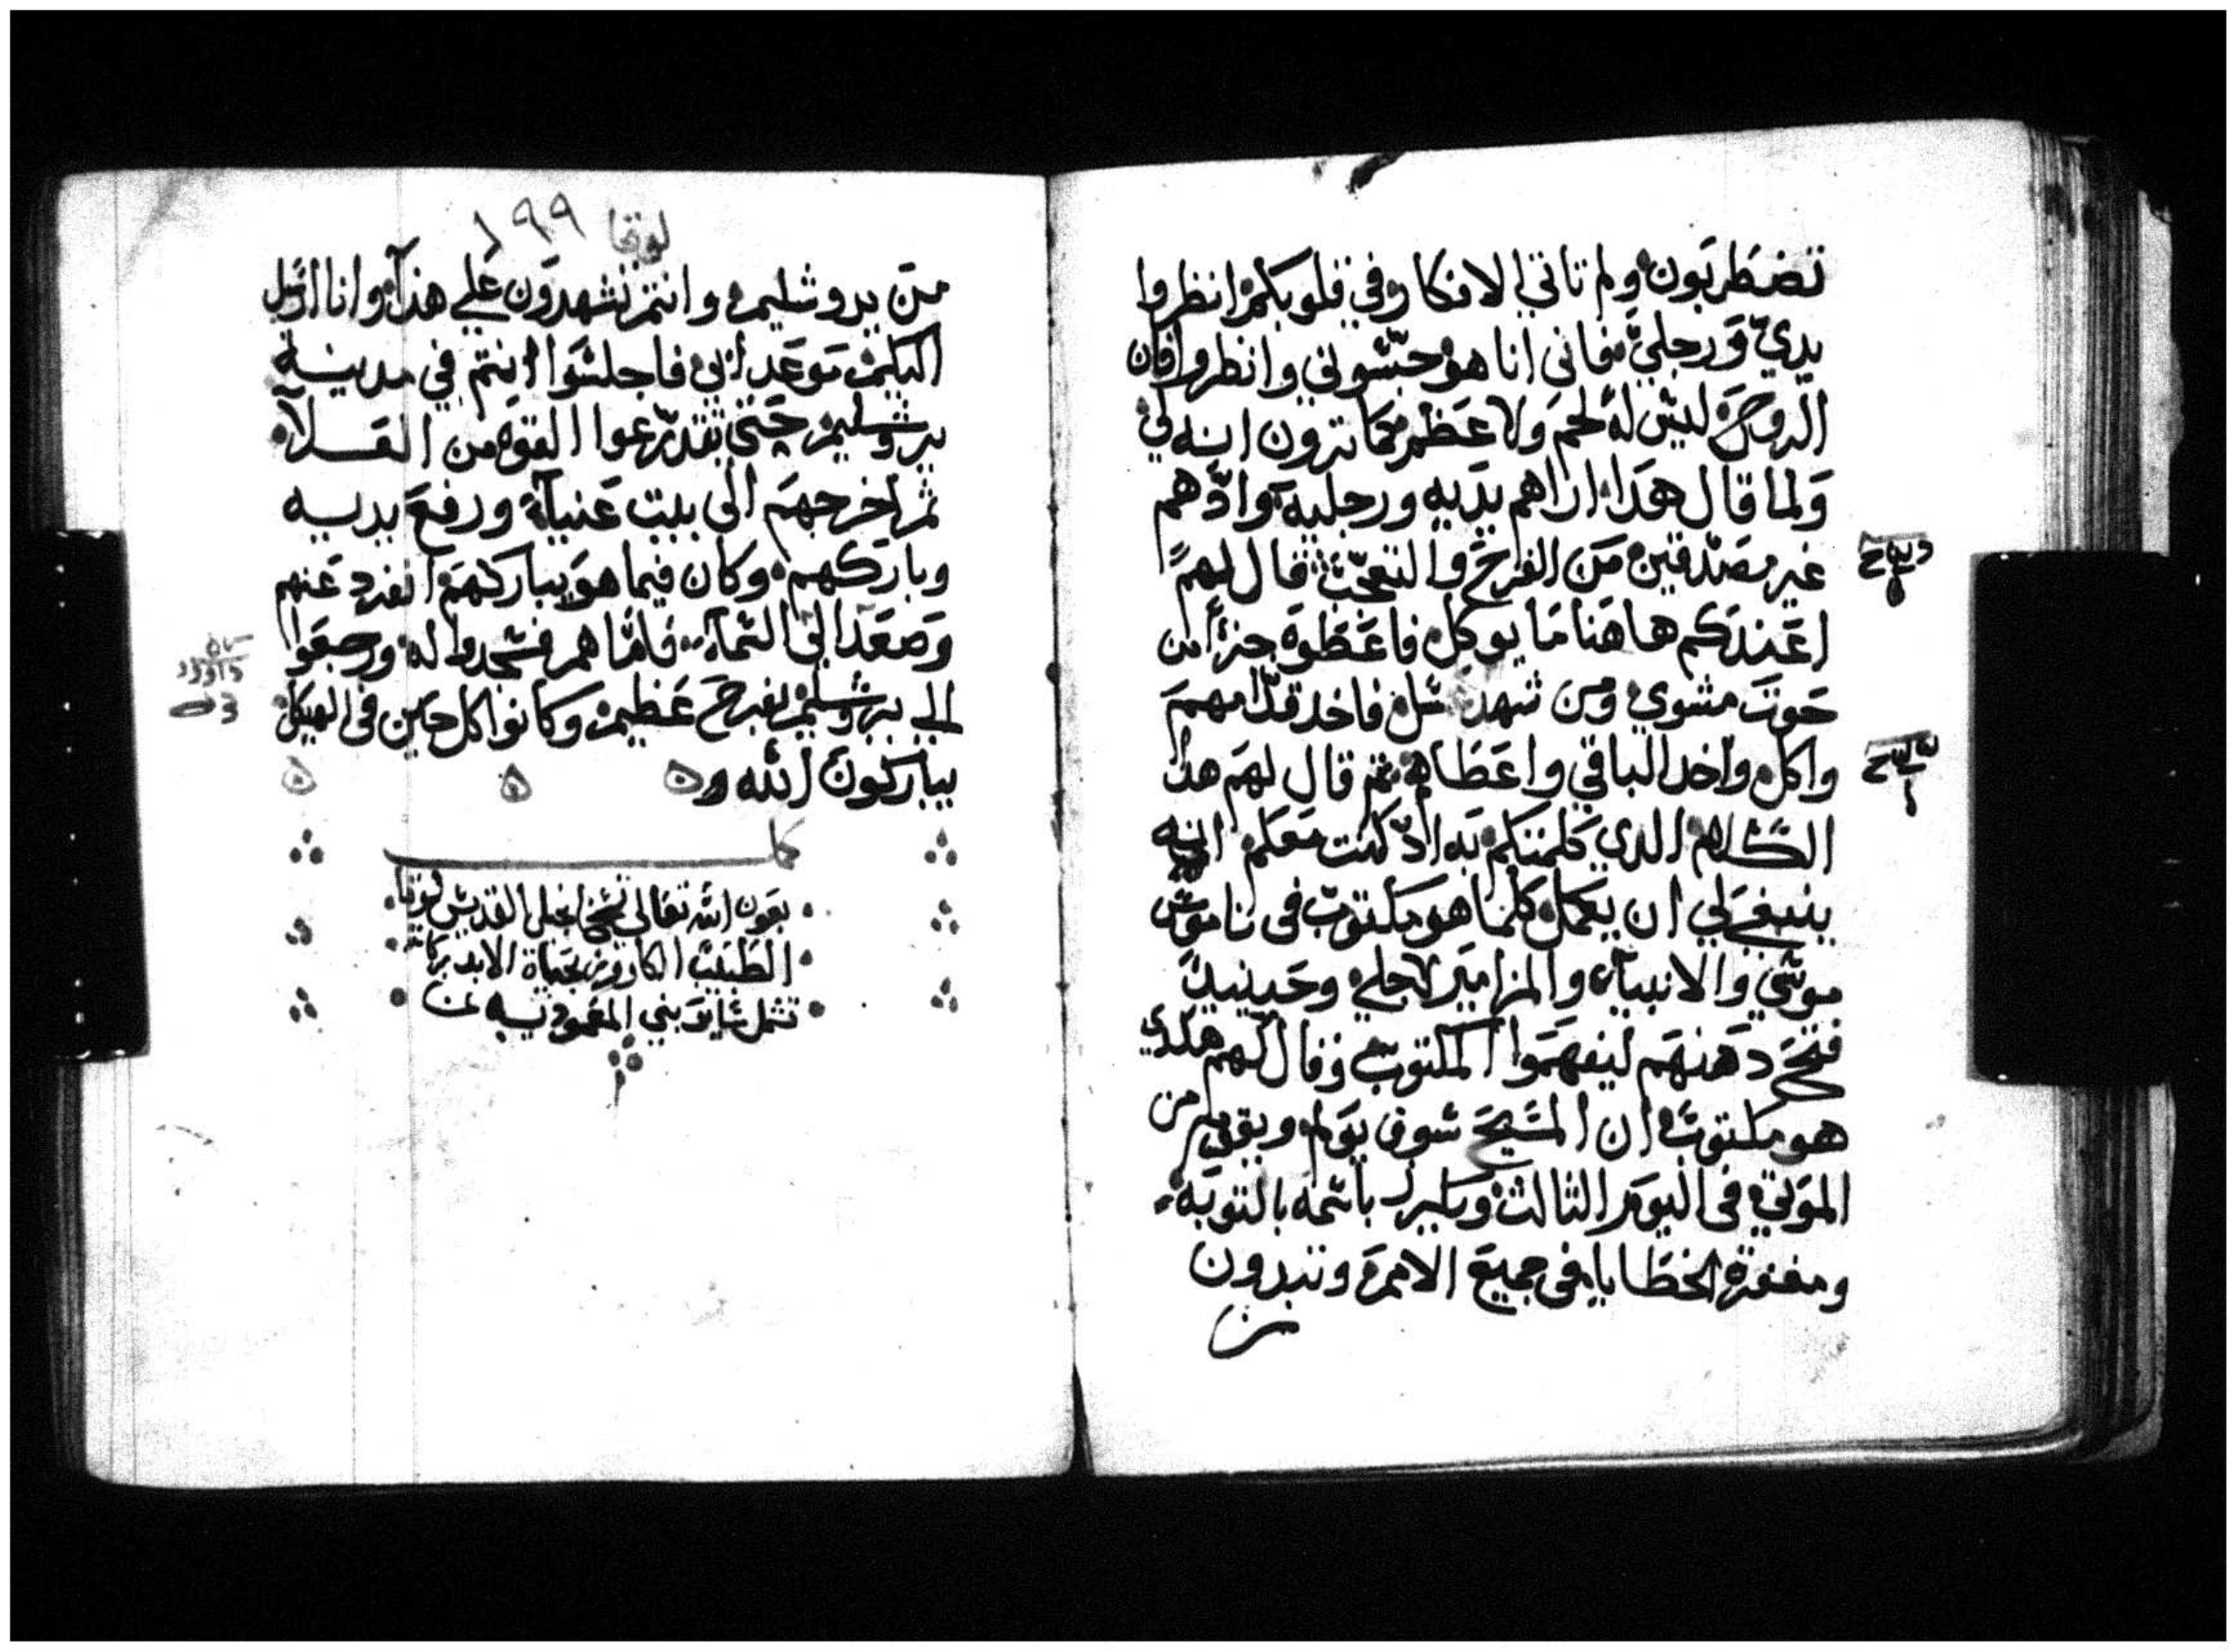 تضطربون ولم تاتي الافكار في قلوبكم انظروا
يدي ورجلي فاني انا هو جسوني وانظروا فان
الروح ليس له لحم ولا عظم كما ترون انه لي
ولما قال هدا اراهم يديه ورجليه وادهم
غير مصدقين من الفرح والتعجب قال لهم
اعندكم هاهنا ما يوكل فاعطوه جزأ من
حوت مشوي ومن شهد عسل فاخد قدامهم
واكل واخد الباقي واعطاهم ثم قال لهم هدا
الكلام الدي كلمتكم به اد كنت معكم انه
ينبغي لي ان يكمل كلما هو مكتوب في ناموس
موسي والانبياء والمزامير لاجلي وحينيد
فتح دهنهم ليفهموا المكتوب وقال لهم هكدي
هو مكتوب ان المسيح سوف يولم ويقوم من
الموتي في اليوم الثالث ويكرز باسمه بالتوبه
ومغفرة الخطايا في جميع الامم وتبدون
من
لوقا ١٩٩
من يروشليم وانتم تشهدون علي هدا وانا ارسل
اليكم موعد ابي فاجلسوا انتم في مدينة
يروشليم حتي تتدرعوا القوه من العلاء
ثم اخرجهم الى بيت عنياء ورفع يديه
وباركهم وكان فيما هو يباركهم انفرد عنهم
وصعد الى السماء فاما هم فسجدوا له ورجعوا
الي يروشليم بفرح عظيم وكانوا كل حين في الهيكل
يباركون الله
كمل
بعون الله تعالي نسخ انجيل القديس لوقا
الطبيب الكاروز بحياة الابد بركاته
تشمل ساير بني المعموديه